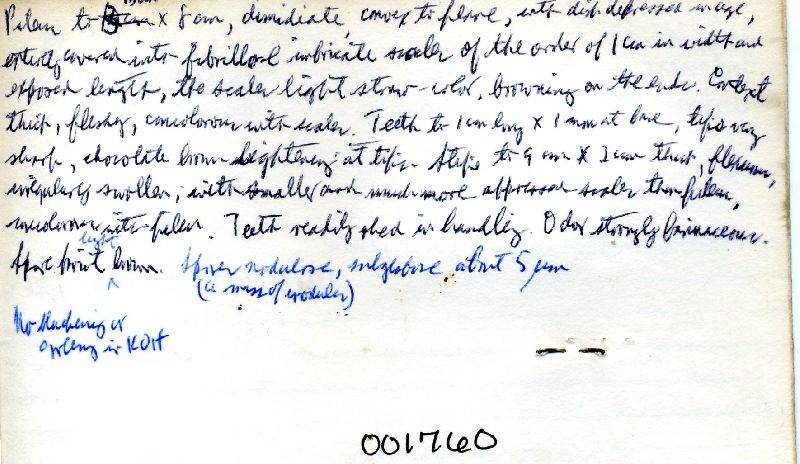 Pileus to 13 cm X 8 cm, dimidiate convex to plane, with disk depressed in age,
entirely covered with fibrillose imbricate scales of the order of 1 cm in width and
exposed length, the scales light straw-color, browning on the ends. Context
thick, fleshy, concolorous with scales. Teeth to 1 cm long X 1 mm at base, tips very
sharp, chocolate brown lightening at tips. Stipe to 9 cm X 3 cm thick,
irregularly swollen, with smaller and much more appressed scales than pileus,
concolorous with pileus. Teeth readily shed in handling. Odor strongly farinaceous.
light
Spore print brown. Spores nodulose, subglobose about 5 µm
(a mass of nodules)
No blackening or
in KOH
001760